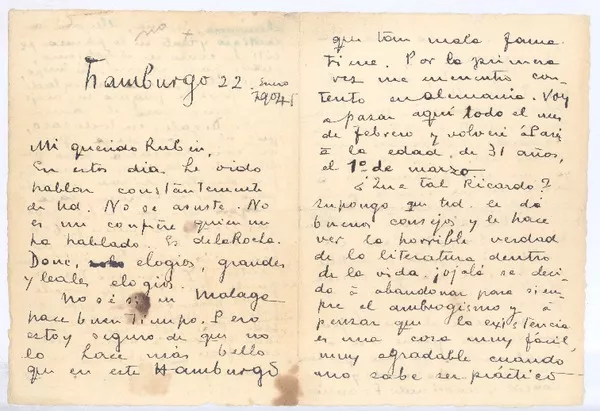 Hamburgo 22 Enero
1904
Mi querido Ruben,
En estos dias he oido
hablar constantemente
de Ud. No se asuste. No
es un confrère quien me
ha hablado. Es de la Rocha.
Donc, elogios, grandes
y leales elogios.
No sé si en Malaga
hace buen tiempo. Pero
estoy seguro de que no
lo hace más bello
que en este Hamburgo
que tan mala fama
tiene. Por la primera
vez me encuentro con-
tento en Alemania. Voy
a pasar aquí todo el mes
de febrero y volveré á Paris
á la edad de 31 años,
el 1º de marzo
¿Que tal Ricardo?
Supongo que Ud. le dá
buenos consejos y le hace
ver la horrible verdad
de la literatura dentro
de la vida. ¡Ojalé se deci-
da á abandonar para siem-
pre el ambrogismo y á
pensar que la existencia
es una cosa muy fácil
muy agradable cuando
uno sabe ser práctico